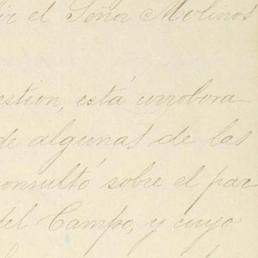 ir el Señor Molinos
estion, está corrobora
de algunas de las
consultó sobre el par
del Campo, y cuyo